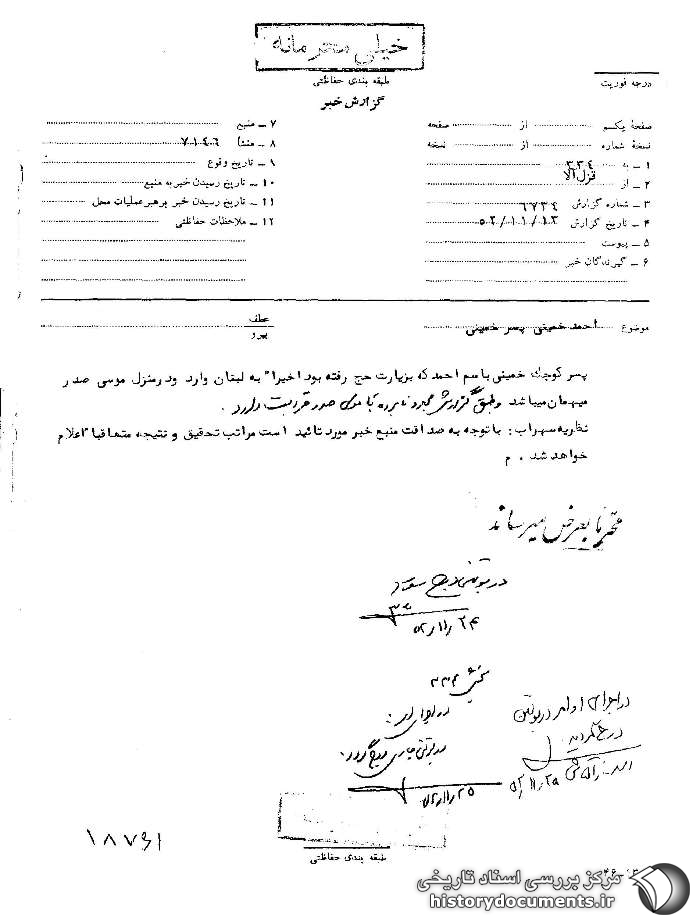 خیلی محرمانه
طبقه بندی حفاظتی
درجه فوریت
گزارش خبر
صفحهٔ یکم از صفحه
نسخهٔ شماره از نسخه
۱ ـ به ۳۳۴
۲ ـ از قزل‌آلا
۳ ـ شماره گزارش ۶۷۳۴
۴ ـ تاریخ گزارش ۵۲/۱۱/۱۳
۵ ـ پیوست
۶ ـ گیرندگان خبر
۷ ـ منبع
۸ ـ منشأ ۷۱۴۰۶
۹ ـ تاریخ وقوع
۱۰ ـ تاریخ رسیدن خبر به منبع
۱۱ ـ تاریخ رسیدن خبر برهبر عملیات محل
۱۲ ـ ملاحظات حفاظتی
موضوع احمد خمینی پسر خمینی
عطف
پیرو
پسر کوچک خمینی باسم احمد که بزیارت حج رفته بود اخیرا" به لبنان وارد ودرمنزل موسی صدر
میهمان میباشد وطبق گزارش نامبرده با موسی صدر قرابت دارد .
نظریه سهراب : باتوجه به صداقت منبع خبر مورد تائید است مراتب تحقیق و نتیجه متعاقبا" اعلام
خواهد شد . م
محترما بعرض میرساند
در بولتن درج
۵۲/۱۱/۲۴
بخش ۳۳۴
در اجرای امر :
در بولتن درج گردد .
۵۲/۱۱/۲۵
در اجرای اوامر در بولتن
درج گردید .
۵۲/۱۱/۲۸
طبقه بندی حفاظتی
مرکز بررسی اسناد تاریخی
historydocuments.ir